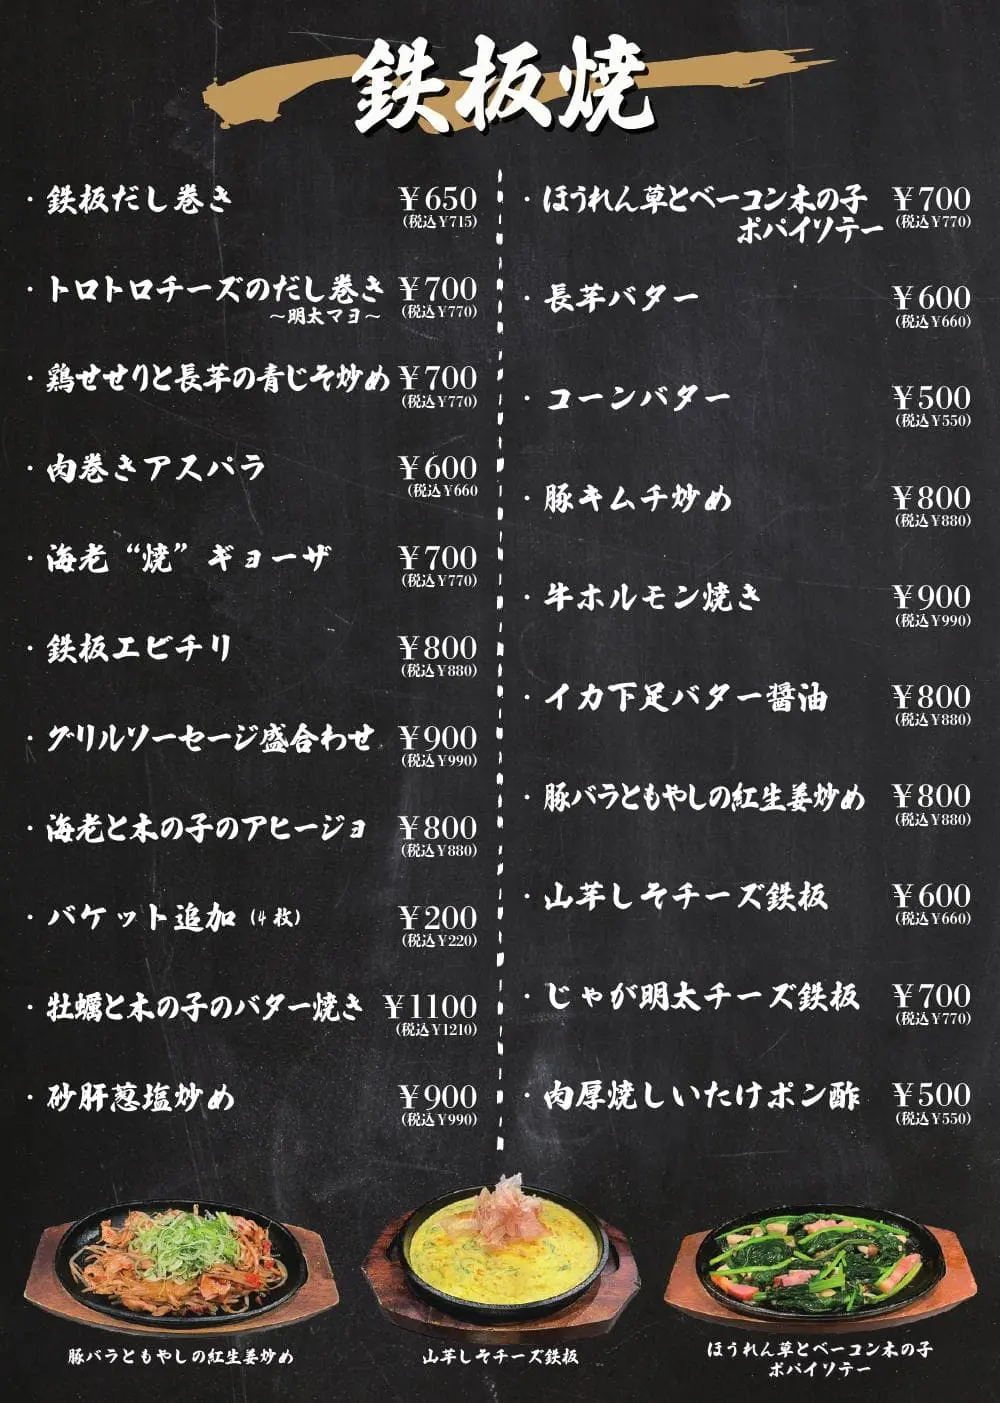 鉄板焼
・鉄板だし巻き ¥650
(税込¥715)
・トロトロチーズのだし巻き ¥700
～明太マヨ～ (税込¥770)
・鶏せせりと長芋の青じそ炒め ¥700
(税込¥770)
・肉巻きアスパラ ¥600
(税込¥660
・海老“焼”ギョーザ ¥700
(税込¥770)
・鉄板エビチリ ¥800
(税込¥880)
・グリルソーセージ盛合わせ ¥900
(税込¥990)
・海老と木の子のアヒージョ ¥800
(税込¥880)
・バケット追加(4枚) ¥200
(税込¥220)
・牡蠣と木の子のバター焼き ¥1100
(税込¥1210)
・砂肝葱塩炒め ¥900
(税込¥990)
・ほうれん草とベーコン木の子 ¥700
ポパイソテー (税込¥770)
・長芋バター ¥600
(税込¥660)
・コーンバター ¥500
(税込¥550)
・豚キムチ炒め ¥800
(税込¥880)
・牛ホルモン焼き ¥900
(税込¥990)
・イカ下足バター醤油 ¥800
(税込¥880)
・豚バラともやしの紅生姜炒め ¥800
(税込¥880)
・山芋しそチーズ鉄板 ¥600
(税込¥660)
・じゃが明太チーズ鉄板 ¥700
(税込¥770)
・肉厚焼しいたけポン酢 ¥500
(税込¥550)
豚バラともやしの紅生姜炒め
山芋しそチーズ鉄板
ほうれん草とベーコン木の子
ポパイソテー